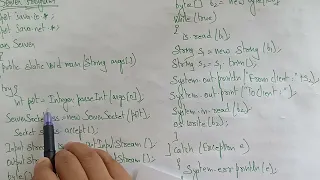 Server Program
import java.io.*;
import java.net.*;
class Server
{
public static void main (String args[])
{
try {
int port = Integer.parseInt (args[0]);
ServerSocket ss = new ServerSocket (port);
Socket s = ss.accept();
InputStream
OutputStream
byte b2 = new byte[
while (true)
{
is.read (b1);
String s1 = new String (b1);
String s2 = s1.trim();
System.out.println ("From client:" +s2);
System.out.print ("To client:");
System.in.read (b2);
os.write (b2);
}
} catch (Exception e)
{
System.err.println (e);